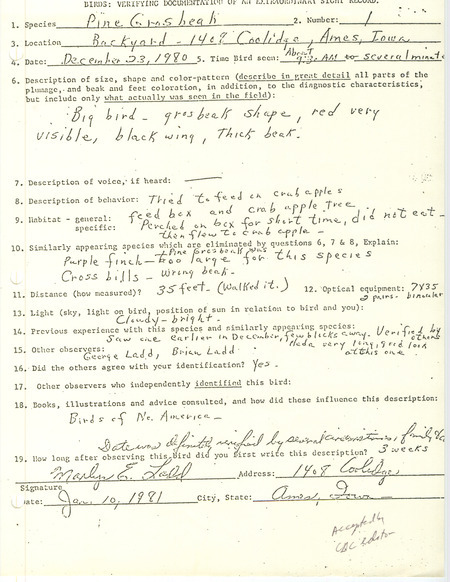 BIRDS: VERIFYING DOCUMENTATION OF AN EXTRAORDINARY SIGHT RECORD.
1. Species Pine Grosbeak 2. Number: 1
3. Location Backyard - 1408 Coolidge, Ames, Iowa
4. Date: December 23, 1980 5. Time Bird seen: About 9:30 AM to several minutes
6. Description of size, shape and color-pattern (describe in great detail all parts of the
plumage, and beak and feet coloring, in addition, to the diagnostic characteristics,
but include only what actually was seen in the field):
Big bird - grosbeak shape, red very
visible, black wing, Thick beak.
7. Description of voice, if heard: —
8. Description of behavior: Tried to feed on crab apples
9. Habitat - general: feed box and crab apple tree
specific: Perched on box for short time, did not eat -
then flew to crab apple -
10. Similarly appearing species which are eliminated by questions 6, 7 & 8, Explain:
Purple finch - Pine grosbeak was too large for this species
Cross bills - wrong beak.
11. Distance (how measured)? 35 feet (Walked it.) 12. Optical equipment: 7X35
2 pairs - binocular
13. Light (sky, light on bird, position of sun in relation to bird and you):
Cloudy - bright.
14. Previous experience with this species and similarly appearing species:
Saw one earlier in December, few blocks away. Verified by others
15. Other observers: Had a very long, good look at this one
George Ladd, Brian Ladd.
16. Did the others agree with your identification? Yes.
17. Other observers who independently identified this bird:
18. Books, illustrations and advice consulted, and how did these influence this description:
Birds of No. America -
Date was definitely verified by several circumstances, family
19. How long after observing this Bird did you first write this description? 3 weeks
Marlyn E. Ladd Address: 1408 Coolidge
Signature
Date: Jan 10, 1981 City, State: Ames, Iowa
Accepted by
CBC Editor